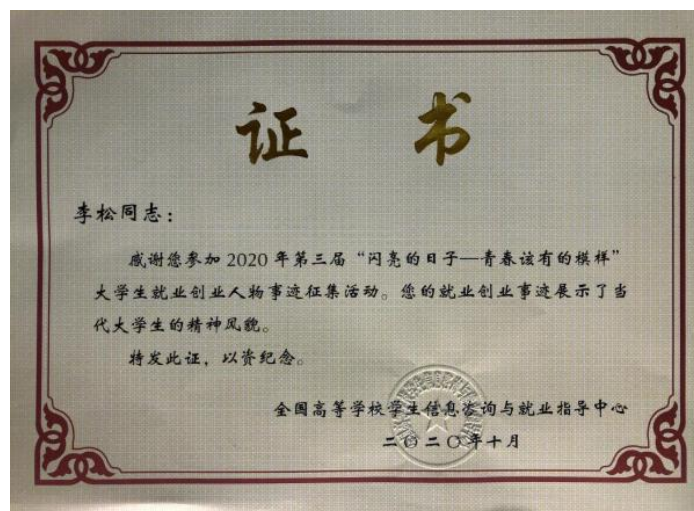 证 书
李松同志：
感谢您参加 2020 年第三届“闪亮的日子—青春该有的模样”
大学生就业创业人物事迹征集活动。您的就业创业事迹展示了当
代大学生的精神风貌。
特发此证，以资纪念。
全国高等学校学生信息咨询与就业指导中心
二〇二〇年十月